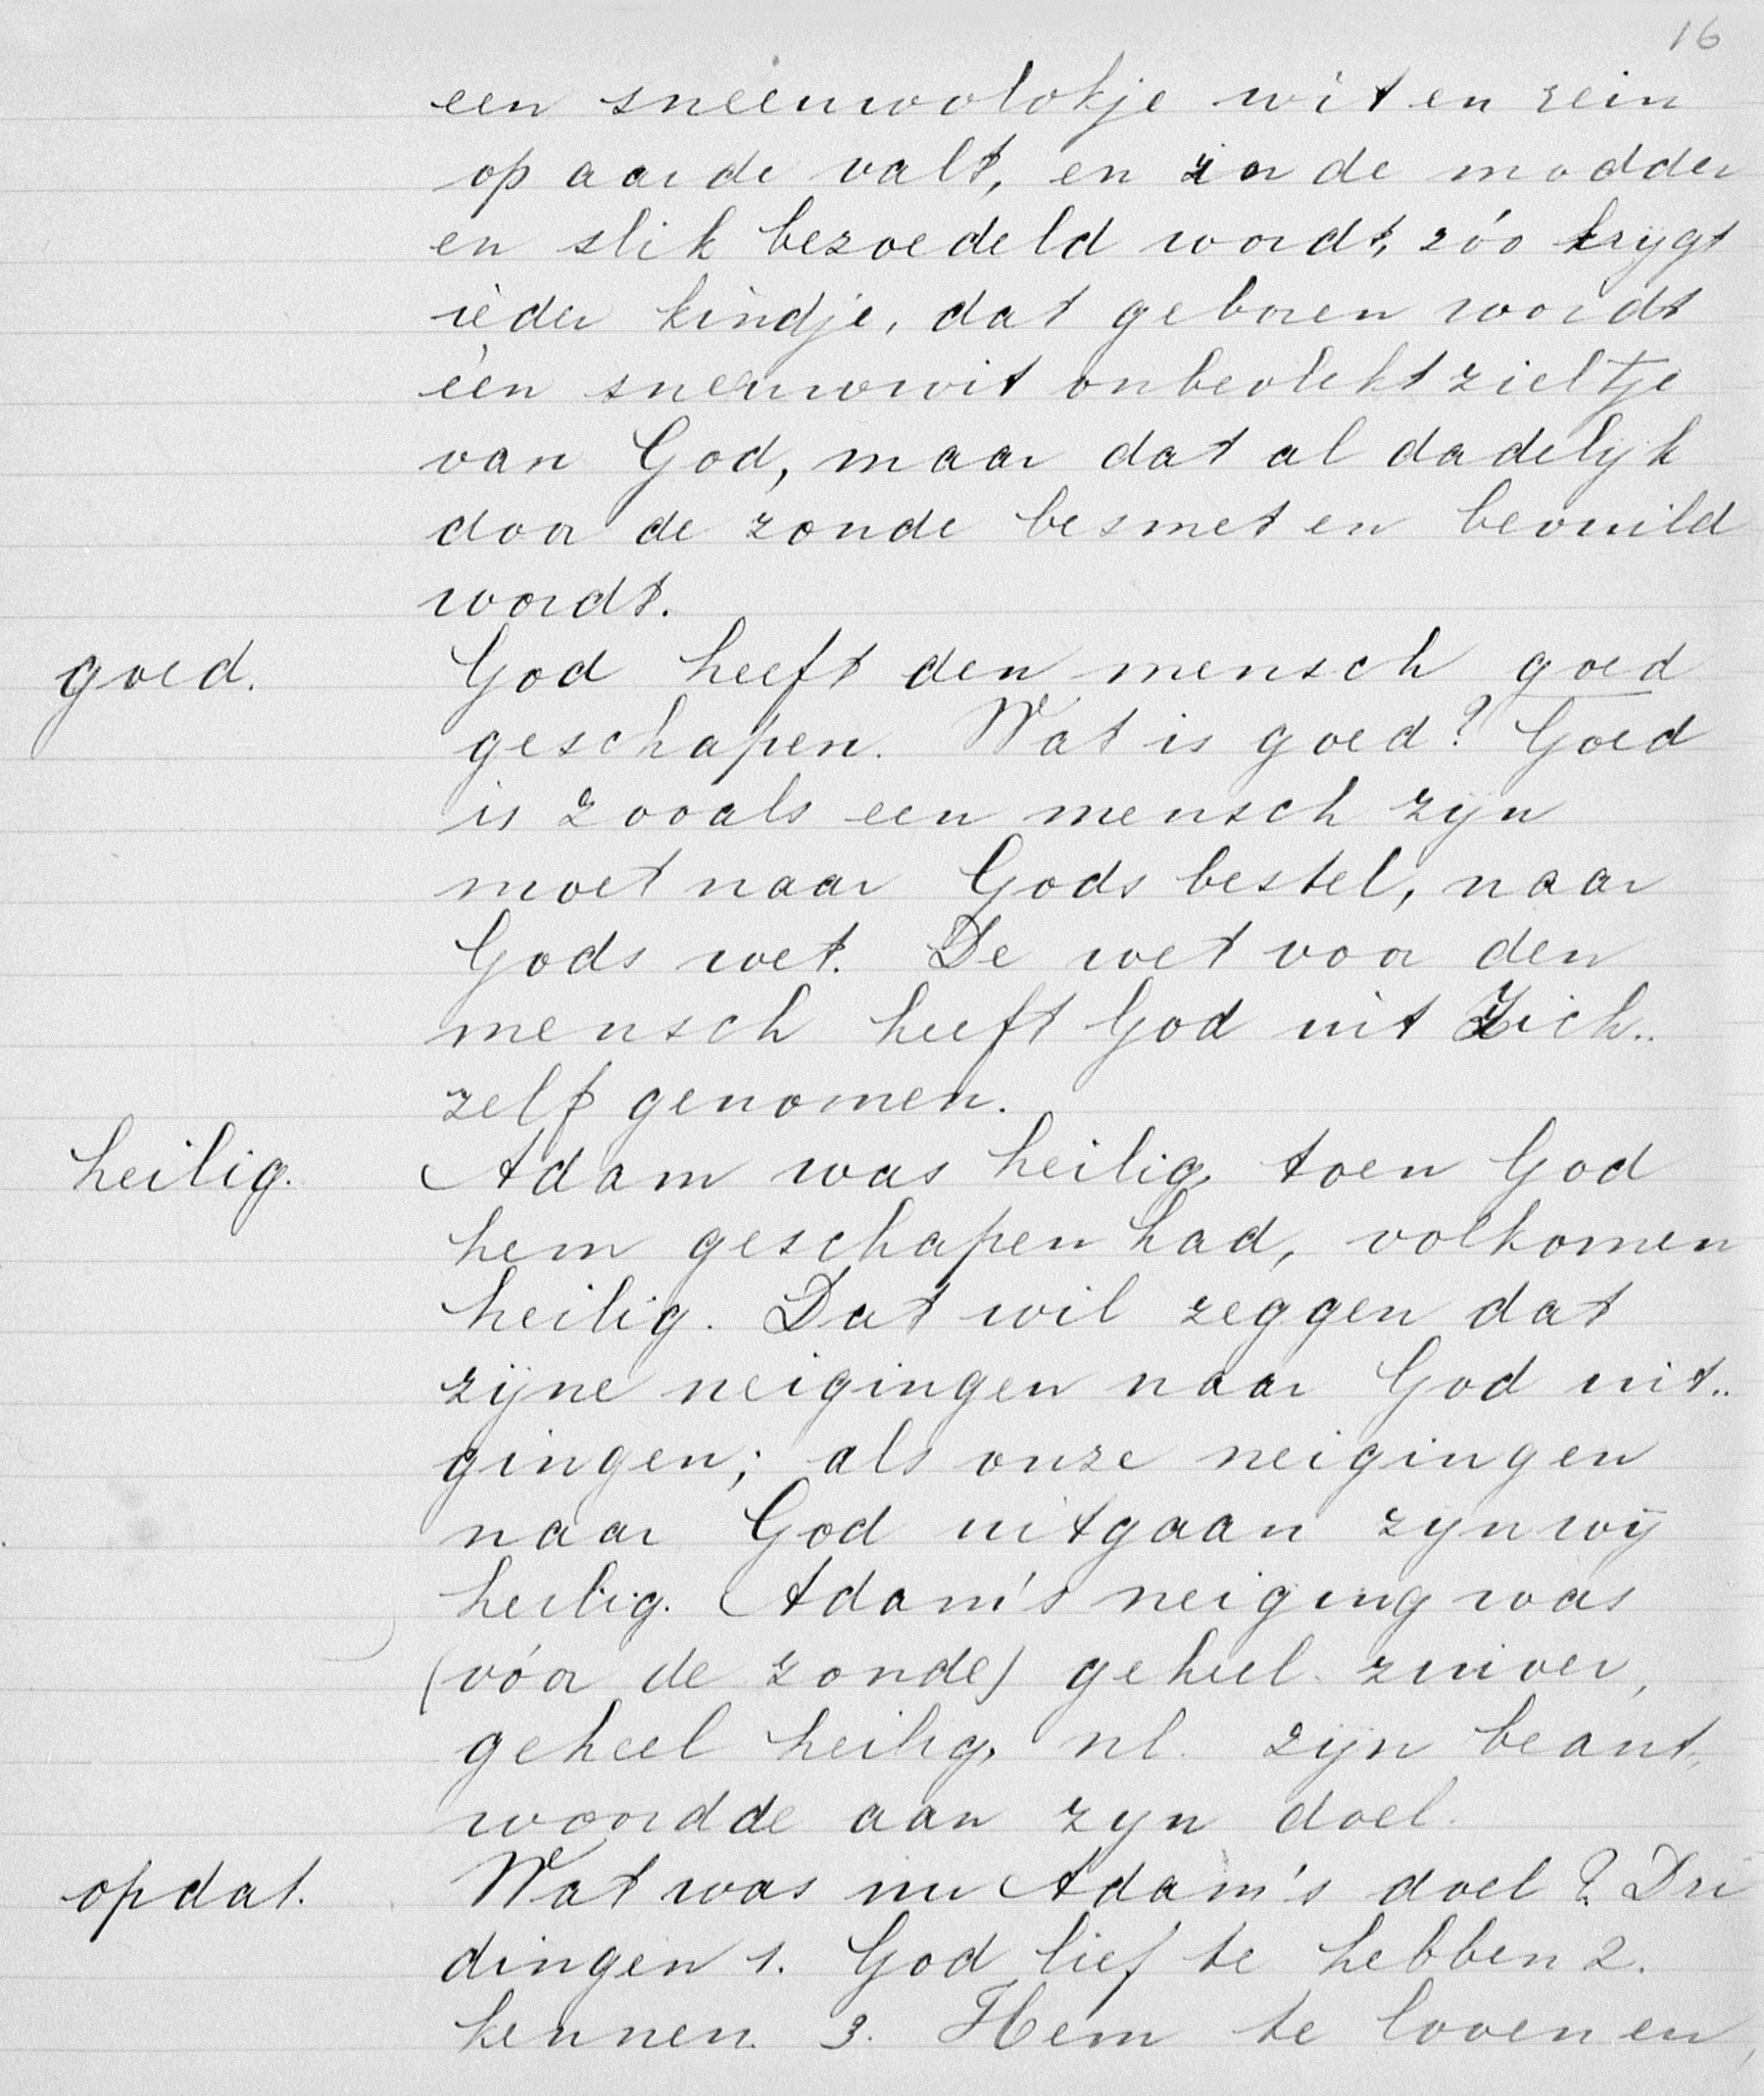 16
een sneeuwvlokje wit en rein
op aarde valt, en in de modder
en slik bezoedeld wordt, zóo krijgt
ieder kindje, dat geboren wordt
één sneeuwwit onbevlekt zieltje
van God, maar dat al dadelijk
door de zonde besmet en bevuild
wordt.
goed. God heeft den mensch goed
geschapen. Wat is goed? Goed
is zooals een mensch zijn
moet naar Gods bestel, naar
Gods wet. De wet voor den
mensch heeft God uit Zich..
zelf genomen.
heilig. Adam was heilig, toen God
hem geschapen had, volkomen
heilig. Dat wil zeggen dat
zijne neigingen naar God uit..
gingen; als onze neigingen
naar God uitgaan zijn wij
heilig. Adam's neiging was
(vóor de zonde) geheel zuiver,
geheel heilig, nl. zijn beant,
woordde aan zijn doel.
opdat. Wat was nu Adam's doel? Dri
dingen 1. God lief te hebben 2.
kennen. 3. Hem te loven en